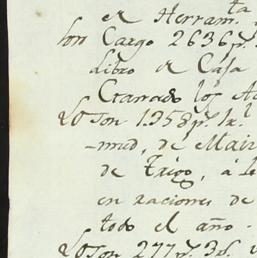 de Herram.ta
son Cargo 2636 p.s
libro de Caja
Cerrado los
Lo son 1.358 p.s 1 r.l
mud, de Maiz
de Trigo, á
en raciones de
todo el año.
Lo son 277 p.s 3 r.s